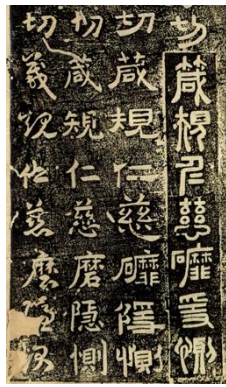 切箴規仁慈䃺隱惻
切葴規仁慈䃺隱惻
切葴規仁慈磨隱惻
切箴規仁慈磨隱惻